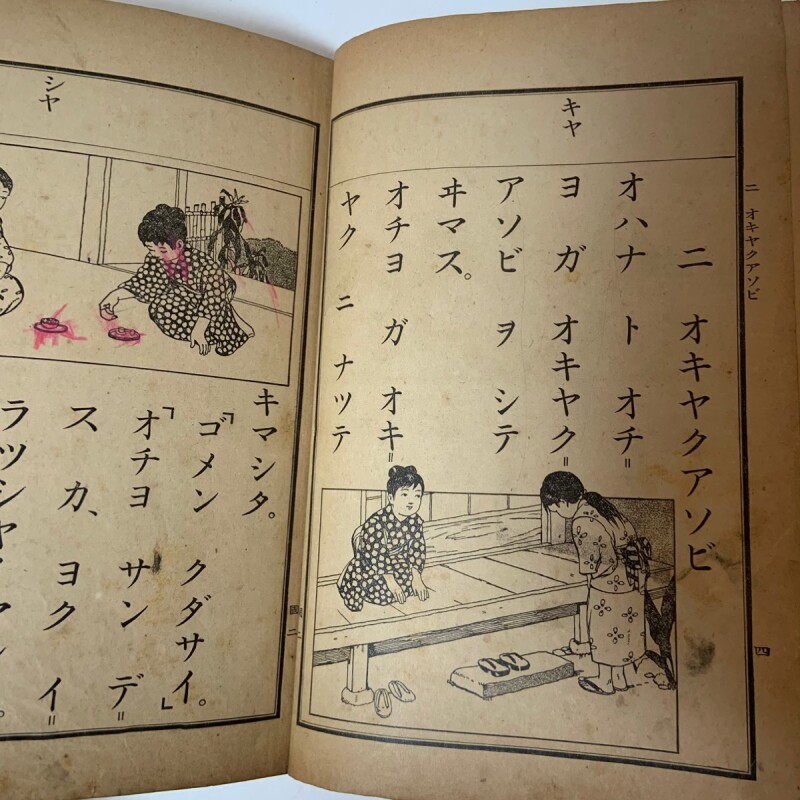 二 オキヤクアソビ
キヤ
二 オキヤクアソビ
オハナ ト オチ=
ヨ ガ オキヤク=
アソビ ヲ シテ
ヰマス。
オチヨ ガ オキ=
ヤク ニ ナツテ
四
シヤ
キマシタ。
「ゴメン クダサイ。」
「オチヨ サン デ=
ス カ、 ヨク イ=
ラツシヤ